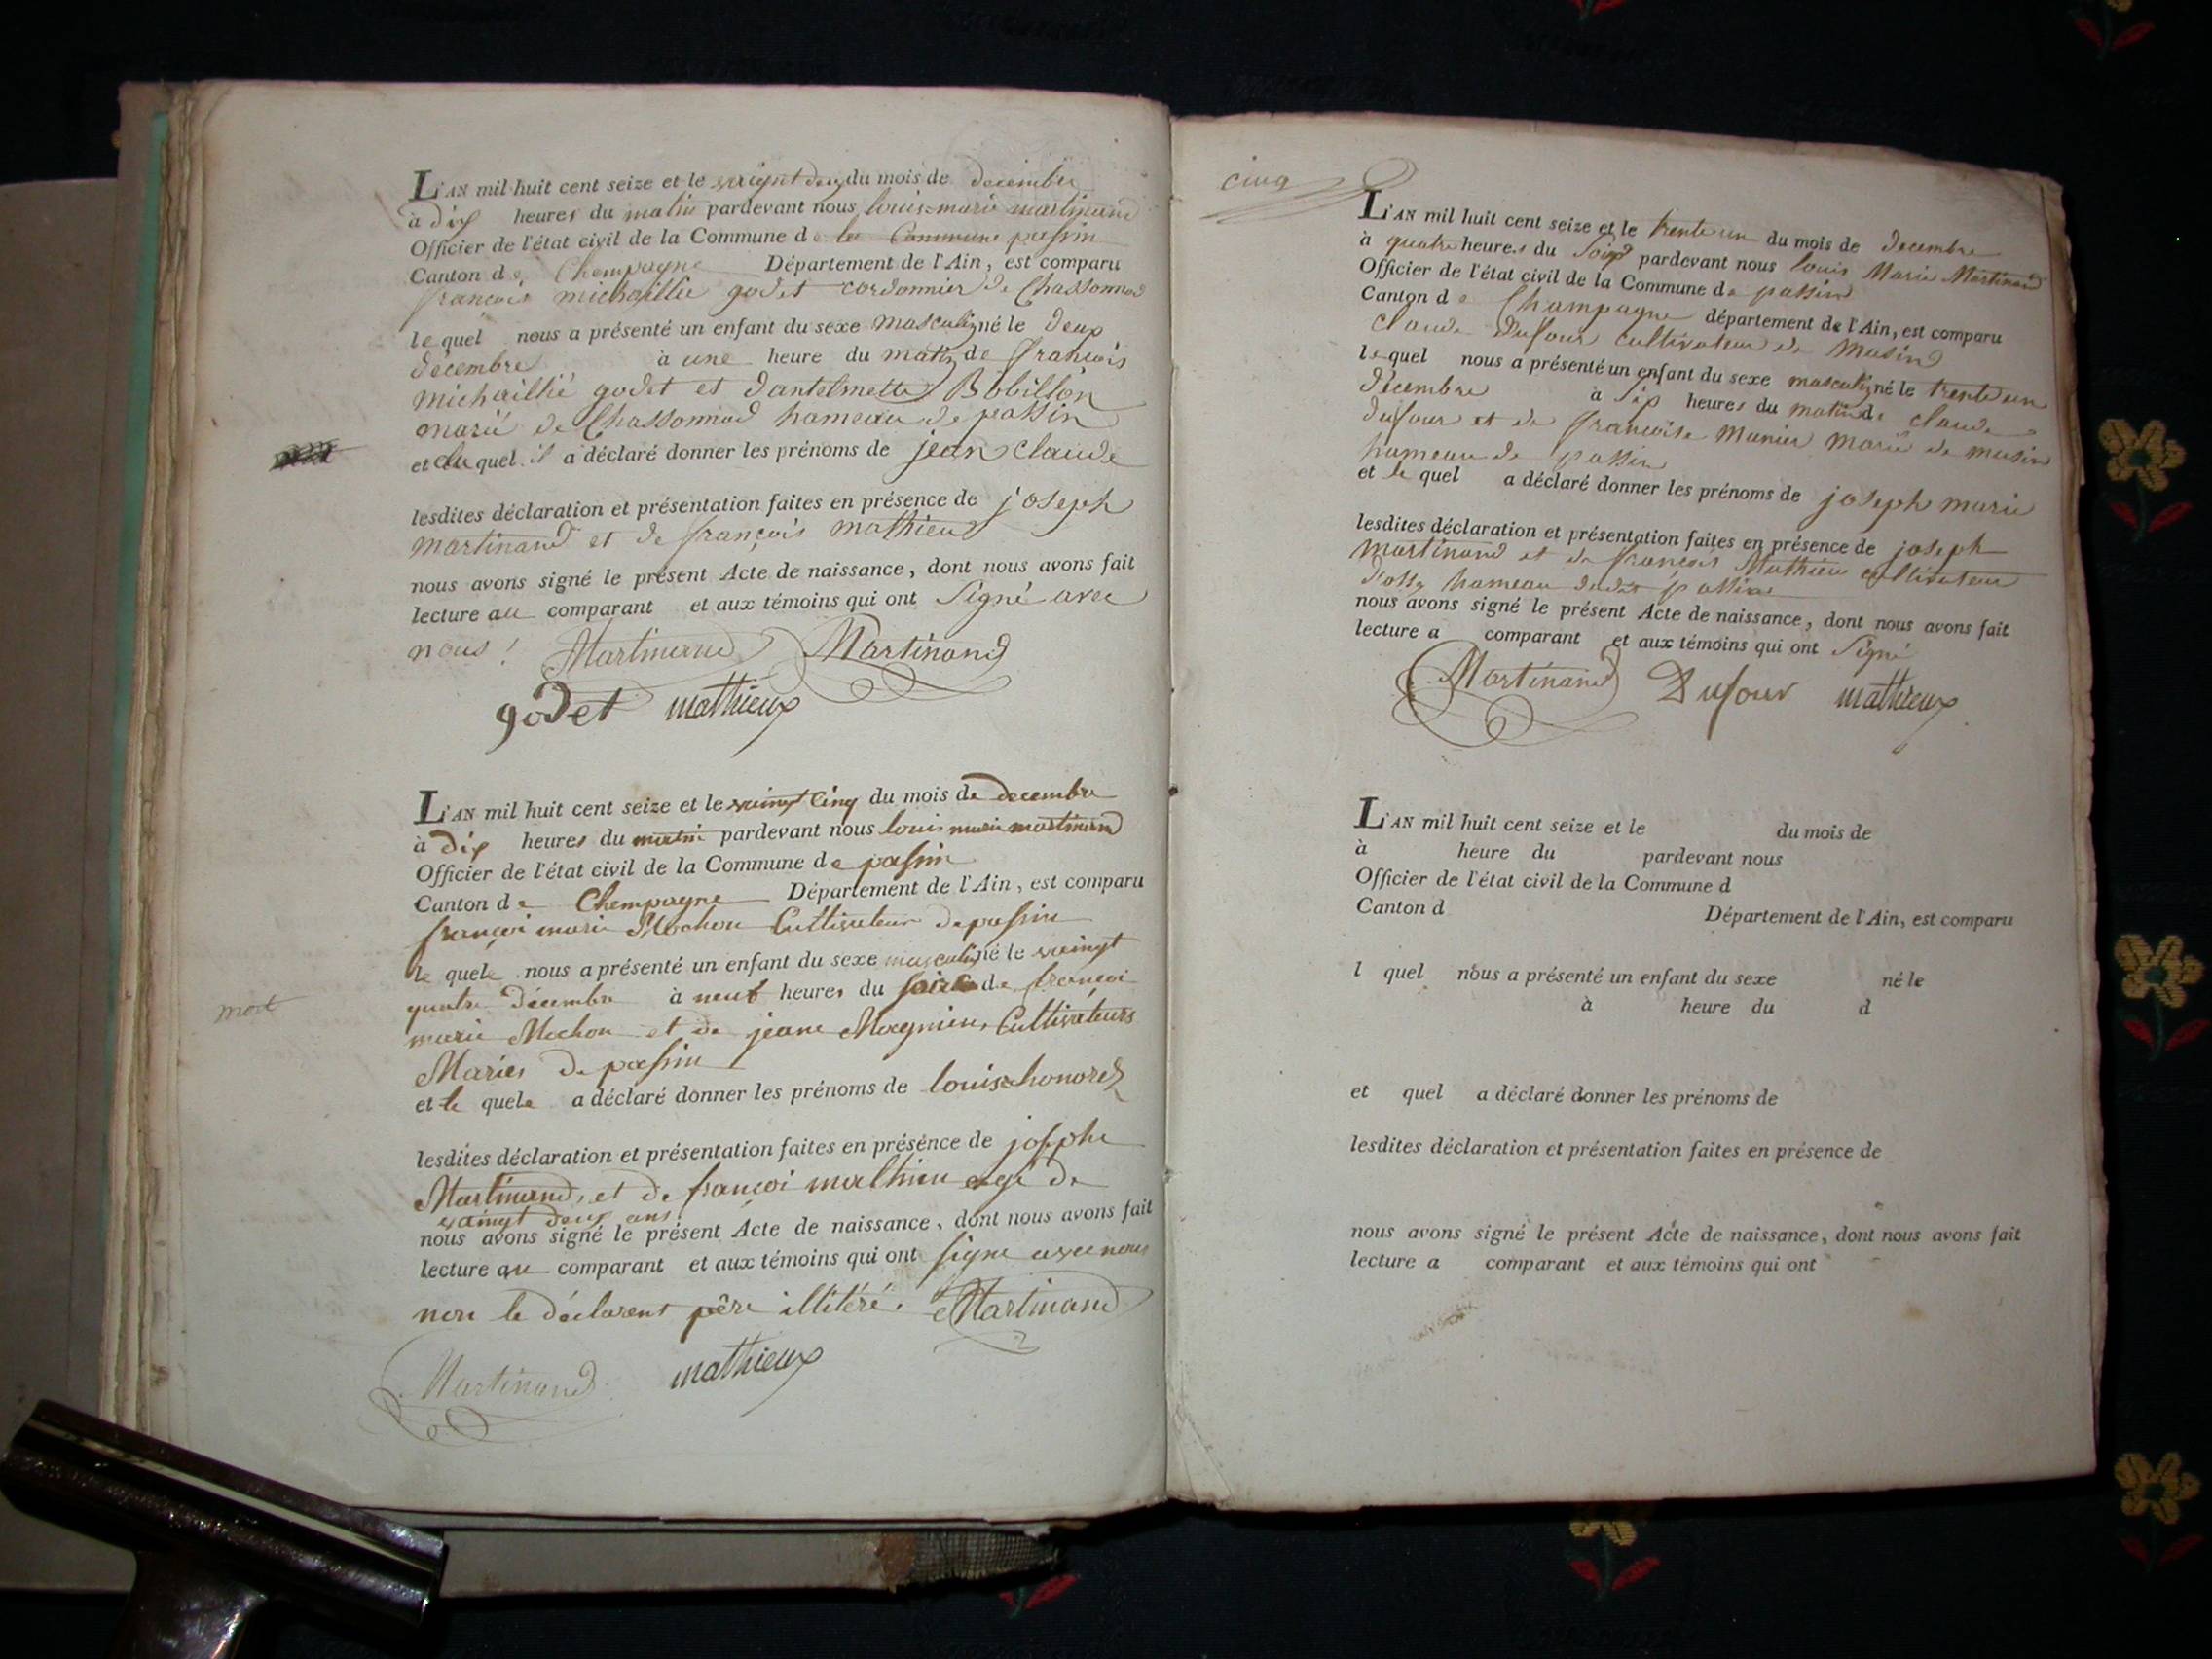 L'AN mil huit cent seize et le vaignt deux du mois de decembre
à dix heures du matin pardevant nous louis marie martinand
Officier de l'état civil de la Commune de la Commune passin
Canton de Chempagne Département de l'Ain, est comparu
françois michaillie godet cordonnier de Chassonnod
lequel nous a présenté un enfant du sexe masculin né le deux
decembre à une heure du matin de françois
michaillié godet et dantelmette Bobillon
marié de Chassonnod hameau de passin
et du quel il a déclaré donner les prénoms de jean claude
lesdites déclaration et présentation faites en présence de joseph
martinand et de françois mathieu
nous avons signé le présent Acte de naissance, dont nous avons fait
lecture au comparant et aux témoins qui ont Signé avec
nous Martinand Martinand
godet mathieux
L'AN mil huit cent seize et le vaingt cinq du mois de decembre
à dix heures du matin pardevant nous louis marie martinand
Officier de l'état civil de la Commune de passin
Canton de Chempagne Département de l'Ain, est comparu
françoi marie Mochon Cultivateur de passin
le quele nous a présenté un enfant du sexe masculin né le vaingt
mort
quatre décembre à neuf heures du soir de françoi
marie Mochon et de jeane Mognien, Cultivateurs
Mariés de passin
et le quele a déclaré donner les prénoms de louis honorez
lesdites déclaration et présentation faites en présence de josephe
Martinand, et de françoi mathieu agé de
vaingt deux ans
nous avons signé le présent Acte de naissance, dont nous avons fait
lecture au comparant et aux témoins qui ont signe avec nous
non le déclarent père illitéré. Martinand
Martinand mathieux
cinq
L'AN mil huit cent seize et le trente un du mois de decembre
à quatre heures du Soir pardevant nous louis Marie Martinand
Officier de l'état civil de la Commune de passin
Canton de Champagne département de l'Ain, est comparu
claude Dufour cultivateur de Musin
lequel nous a présenté un enfant du sexe masculin né le trente un
decembre à Sep heures du matin de claude
dufour et de françoise Munier marié de musin
hameau de passin
et le quel a déclaré donner les prénoms de joseph marie
lesdites déclaration et présentation faites en présence de joseph
martinand et de françois Mathieu cultivateur
hameau dudit passin
nous avons signé le présent Acte de naissance, dont nous avons fait
lecture a comparant et aux témoins qui ont Signé
Martinand Dufour mathieux
L'AN mil huit cent seize et le du mois de
à heure du pardevant nous
Officier de l'état civil de la Commune d
Canton d Département de l'Ain, est comparu
l quel nous a présenté un enfant du sexe né le
à heure du d
et quel a déclaré donner les prénoms de
lesdites déclaration et présentation faites en présence de
nous avons signé le présent Acte de naissance, dont nous avons fait
lecture a comparant et aux témoins qui ont